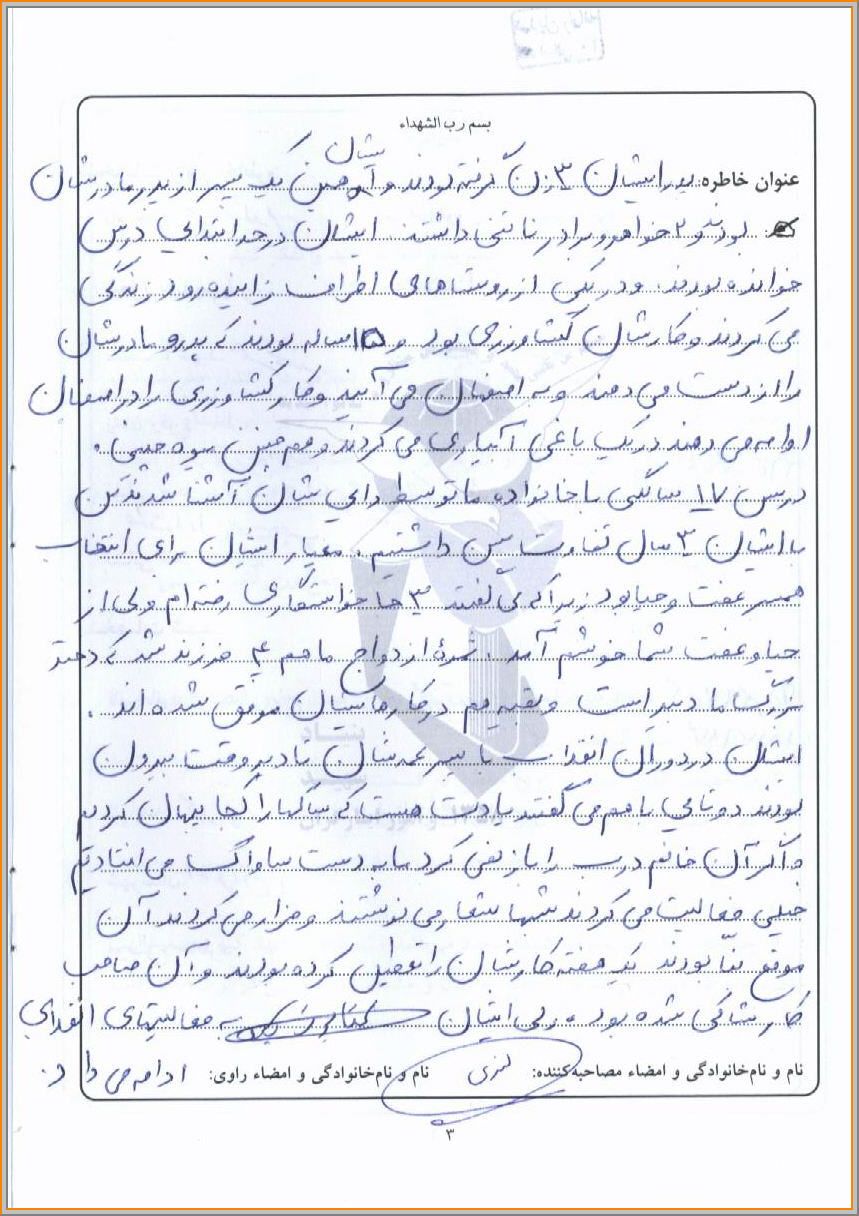 بسم رب الشهداء
عنوان خاطره: پدر ایشان ۳ زن گرفته بودند و ایشان همین یک پسر از پدر مادرشان
بودند و ۲ خواهر و برادر ناتنی داشتند. ایشان در حد ابتدایی درس
خوانده بودند. و در یکی از روستاهای اطراف زاینده رود زندگی
می کردند و کارشان کشاورزی بود و ۱۵ ساله بودند که پدر و مادرشان
را از دست می دهند و به اصفهان می آیند و کار کشاورزی را در اصفهان
ادامه می دهند در یک باغی آبیاری می کردند و هم چنین میوه چینی.
در سن ۱۷ سالگی با خانواده ما توسط دایی شان آشنا شدند من
با ایشان ۳ سال تفاوت سن داشتیم. معیار ایشان برای انتخاب
همسر عفت و حیا بود زیرا که می گفتند ۳ جا خواستگاری رفته ام ولی از
حیا و عفت شما خوشم آمد. ثمرهٔ ازدواج ما هم ۴ فرزند شد که دختر
بزرگ ما دبیر است و بقیه هم در کارهایشان موفق شده اند.
ایشان در دوران انقلاب با پسر عمه شان تا دیر وقت بیرون
بودند دوتایی با هم می گفتند یادت هست که ساکها را کجا پنهان کردیم
و اگر آن خانم درب را باز نمی کرد ما به دست ساواک می افتادیم
خیلی فعالیت می کردند شبها شعار می نوشتند و فرار می کردند آن
موقع بنّا بودند یک هفته کارشان را تعطیل کرده بودند و آن صاحب
کار شاکی شده بود. ولی ایشان به فعالیتهای انقلابی
نام و نام خانوادگی و امضاء مصاحبه کننده: نام و نام خانوادگی و امضاء راوی: ادامه می داد.
۳